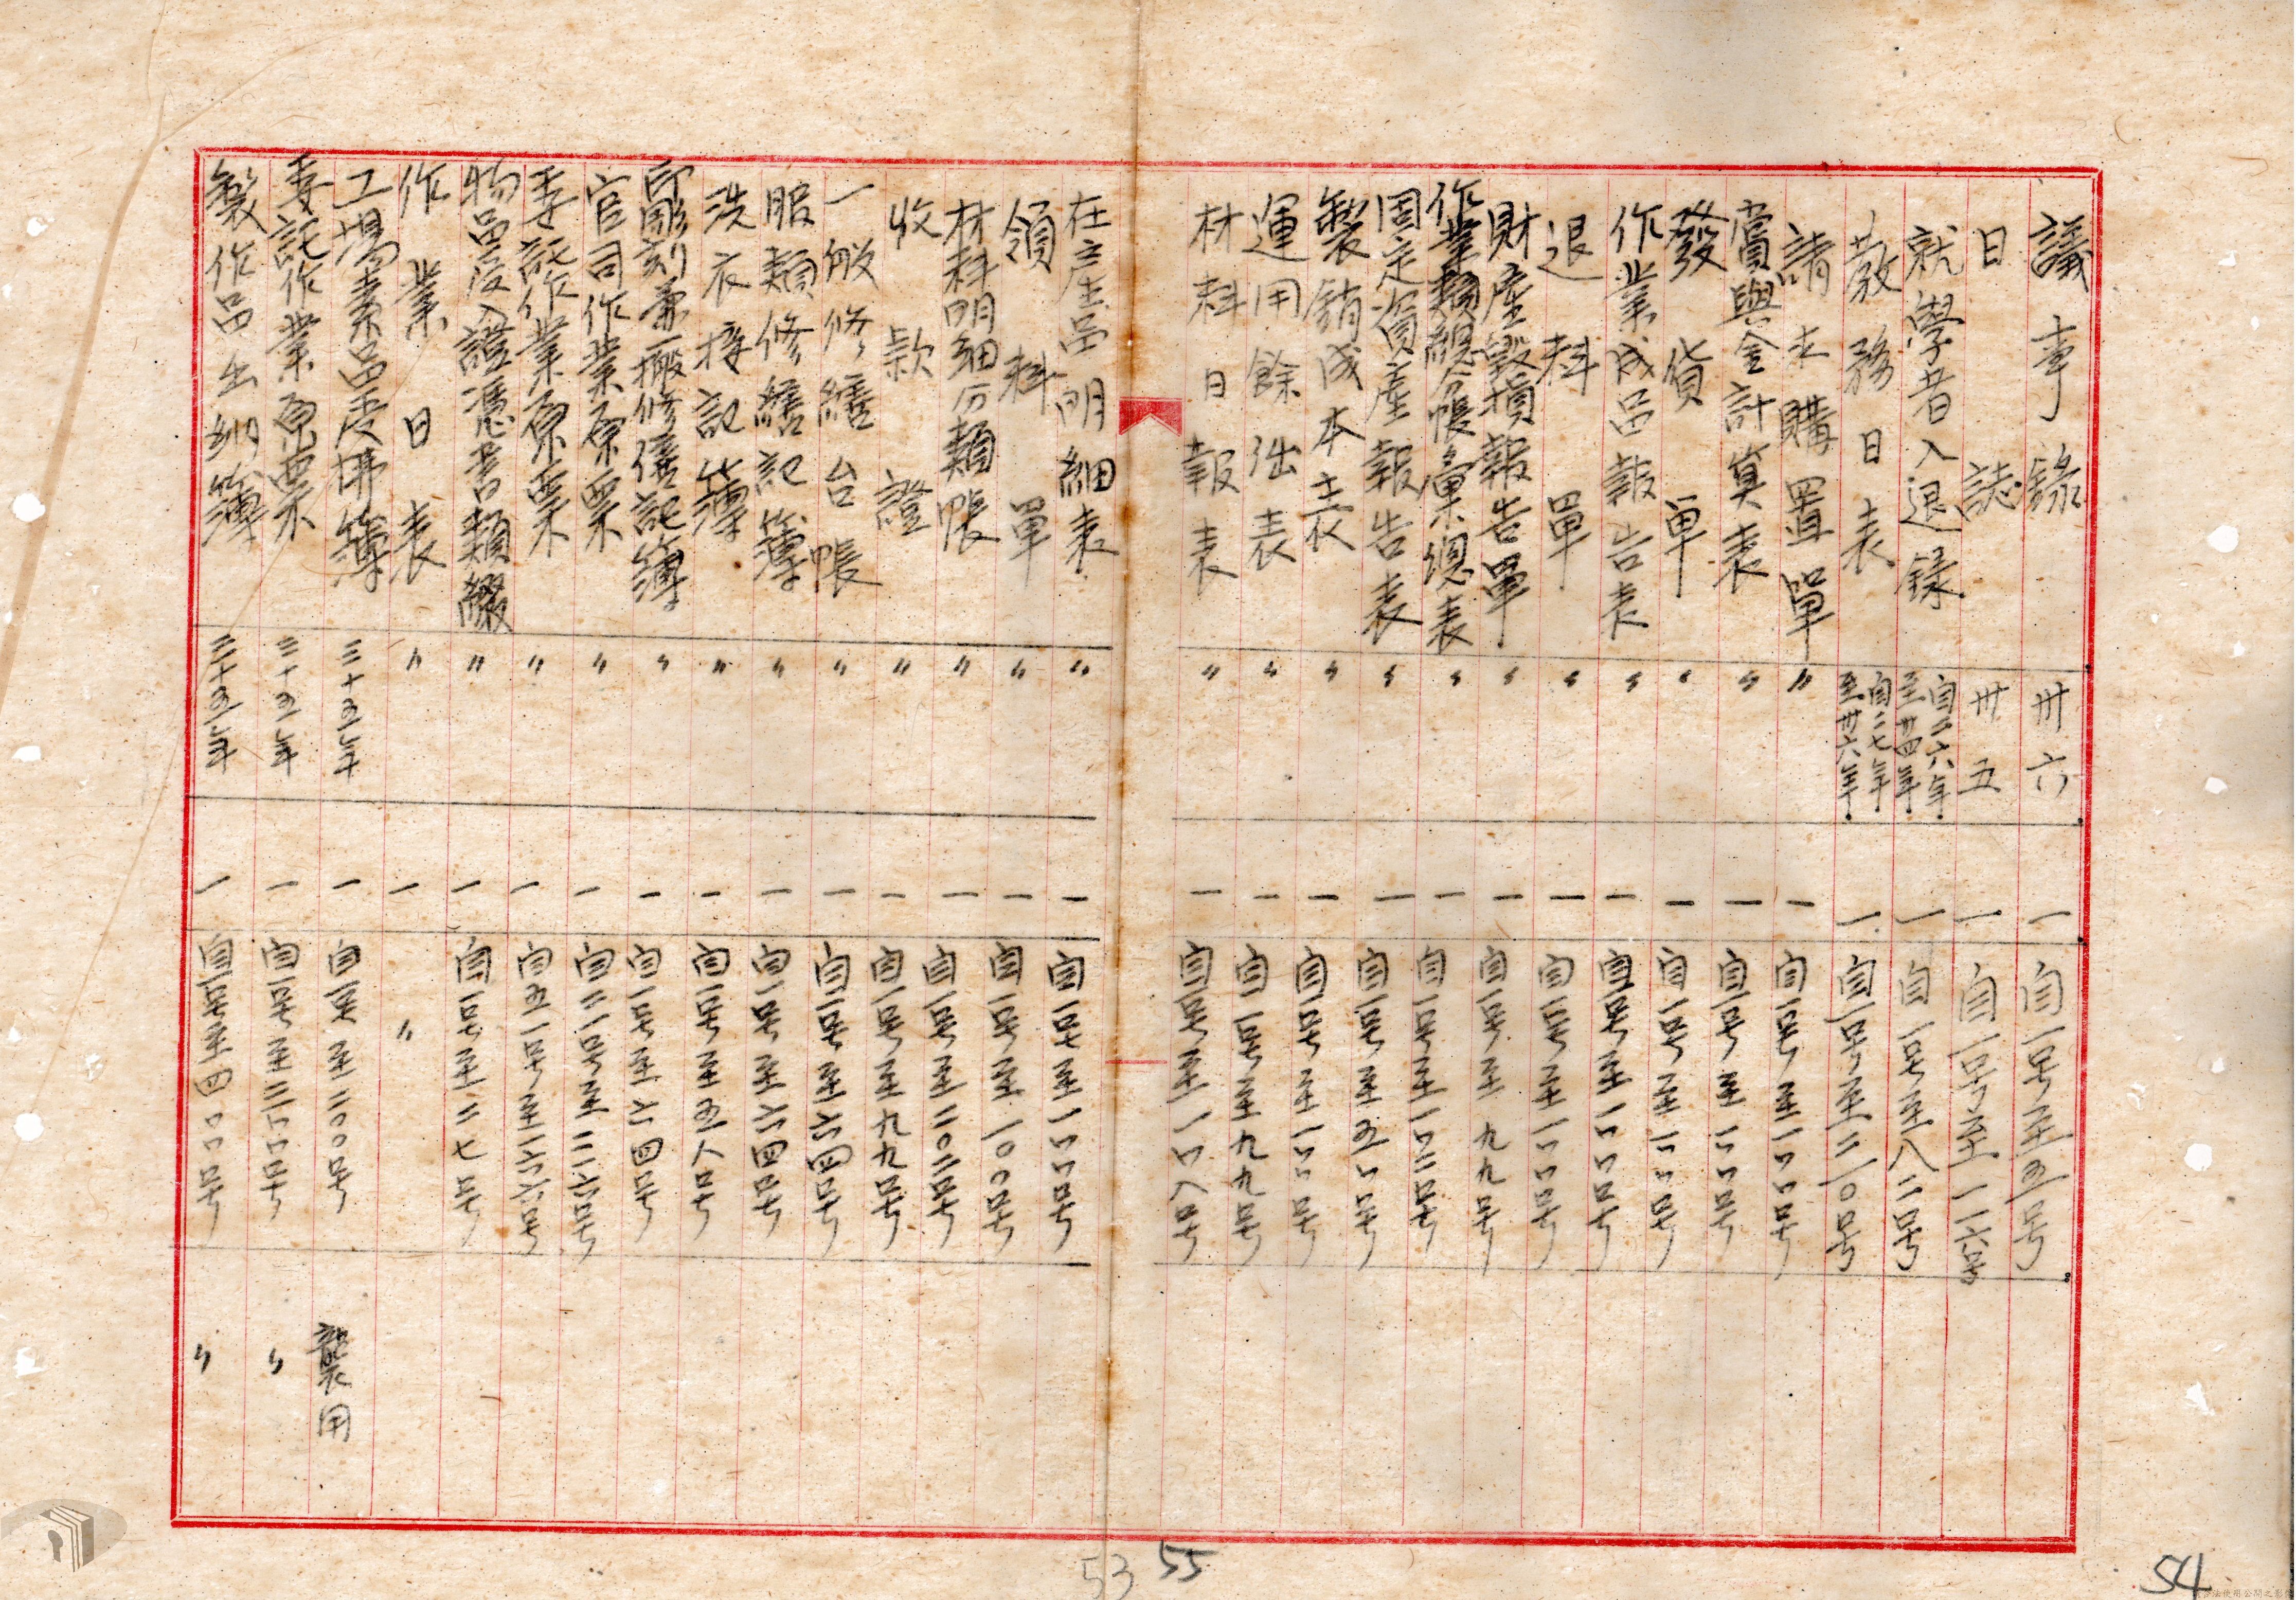 議事錄 卅六 一 自一号至五一号
日誌 卅五 一 自一号至一一六号
就學者入退錄 自二六年至卅四年 一 自一号至八二号
教務日表 自二七年至卅六年 一 自一号至二一〇号
請求購置單 〃 一 自一号至一〇〇号
賞與金計算表 〃 一 自一号至一〇〇号
發貨單 〃 一 自一号至一〇〇号
作業成品報告表 〃 一 自一号至一〇〇号
退料單 〃 一 自一号至一〇〇号
財產毀損報告單 〃 一 自一号至九九号
作業類總分帳彙總表 〃 一 自一号至一〇二号
固定資產報告表 〃 一 自一号至五〇号
製銷成本表 〃 一 自一号至一〇〇号
運用餘絀表 〃 一 自一号至九九号
材料日報表 〃 一 自一号至一〇八号
在產品明細表 〃 一 自一号至一〇〇号
領料單 〃 一 自一号至一〇〇号
材料明細分類帳 〃 一 自一号至二〇二号
收款證 〃 一 自一号至九九号
一般修繕台帳 〃 一 自一号至六四号
服類修繕記簿 〃 一 自一号至六四号
洗衣接記簿 〃 一 自一号至五八号
印刷彫刻並一般修繕記簿 〃 一 自一号至六四号
官司作業原票 〃 一 自二一号至二二六号
委託作業原票 〃 一 自五一号至二六六号
物品受入證憑書類綴 〃 一 自一号至二七号
作業日表 〃 一 〃
工場素品受拂簿 三十四年 一 自一号至二〇〇号 襲用
委託作業原票 三十四年 一 自一号至三〇〇号 〃
製作品出納簿 三十四年 一 自一号至四〇〇号 〃
53
55
54